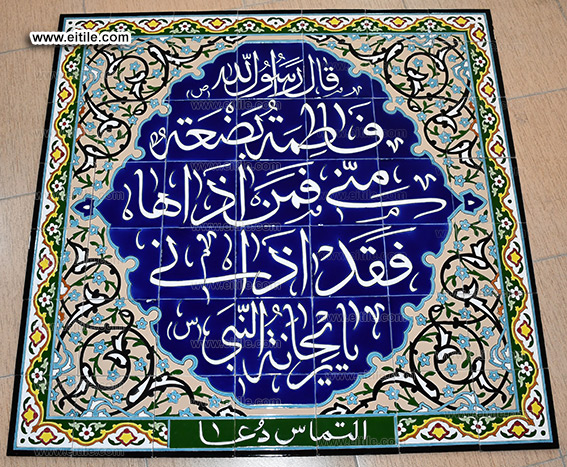 www.eitile.com
قال رسول الله ص
فاطمة بضعة
منّي فمن اذاها
فقد اذاني
يا ريحانة النبي س
التماس دعا